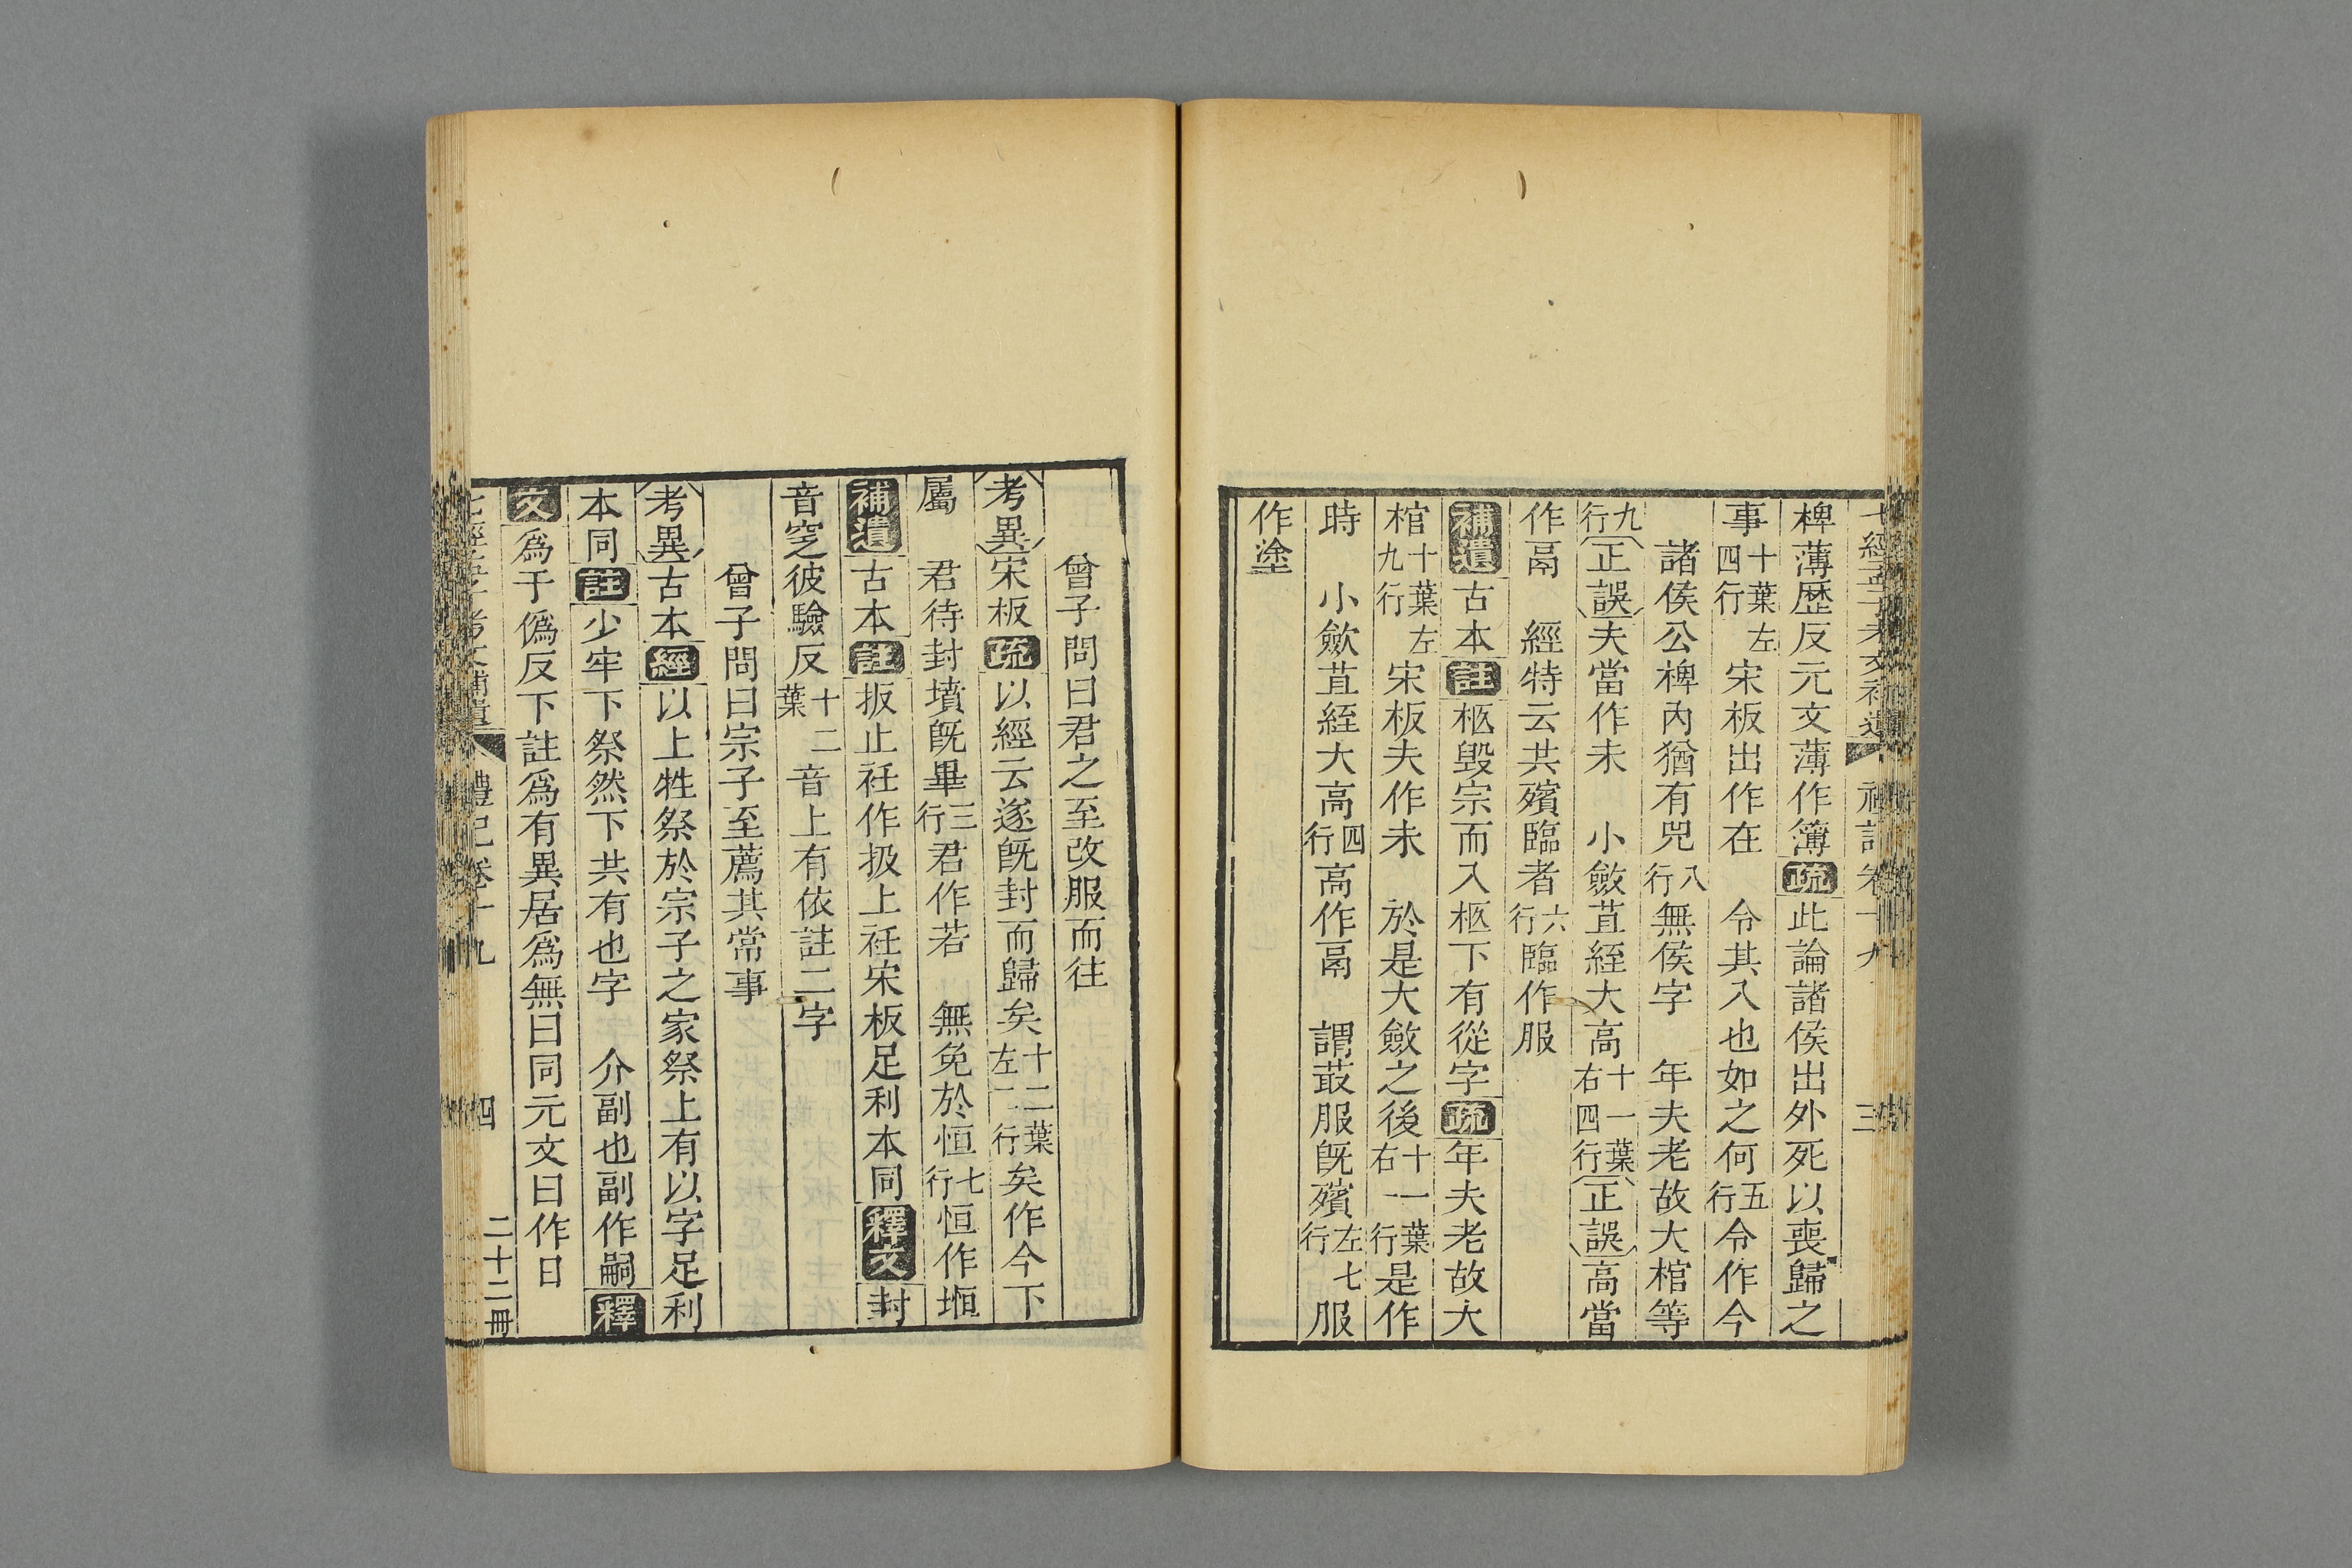 七經孟子考文補遺 禮記卷十九 三
椑薄歷反元文薄作簿疏此論諸侯出外死以喪歸之
事十葉左四行宋板出作在 令其入也如之何五行令作今
諸侯公椑內猶有兕八行無侯字 年夫老故大棺等
九行正誤夫當作未 小斂苴絰大高十一葉右四行正誤高當
作鬲 經特云共殯臨者六行臨作服
補遺古本註柩毀宗而入柩下有從字疏年夫老故大
棺十葉左九行宋板夫作未 於是大斂之後十一葉右一行是作
時 小斂苴絰大高四行高作鬲 謂菆服旣殯左七行服
作塗
曾子問曰君之至改服而往
考異宋板疏以經云遂旣封而歸矣十二葉左二行矣作今下
屬 君待封墳旣畢三行君作若 無免於恒七行恒作堩
補遺古本註扱止衽作扱上衽宋板足利本同釋文封
音窆彼驗反十二葉音上有依註二字
曾子問曰宗子至薦其常事
考異古本經以上牲祭於宗子之家祭上有以字足利
本同註少牢下祭然下共有也字 介副也副作嗣釋
文爲于僞反下註爲有異居爲無曰同元文曰作日
七經孟子考文補遺 禮記卷十九 四 二十二冊